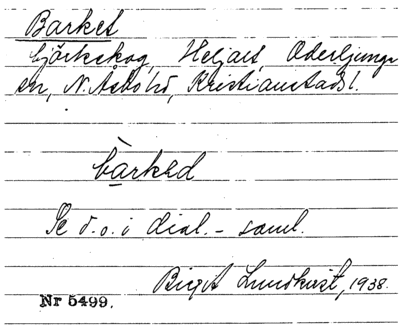 Barket
björkskog, Heljalt, Oderljunga
sn, N. Åsbo hd, Kristianstads l.
bàrkəd
Se d. o. i dial.-saml.
Birgit Lundkvist, 1938.
Nr 5499.